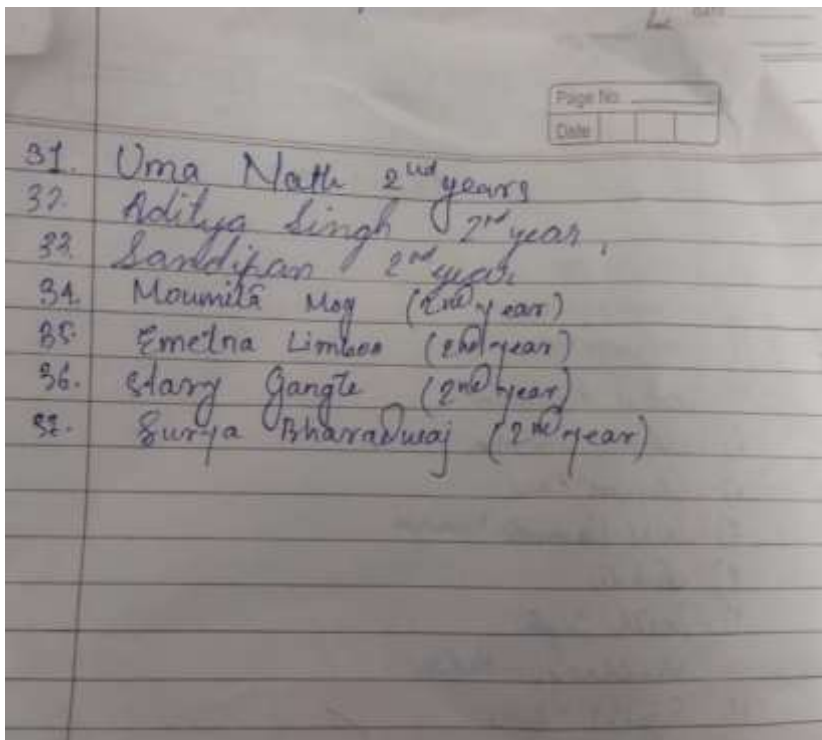 Page No.
Date
31. Uma Nath 2nd years
32. Aditya Singh 2nd year,
33. Sandipan 2nd year
34. Moumita Mog (2nd year)
35. Limboo (2nd year)
36. Gangte (2nd year)
37. Surya Bharadwaj (2nd year)